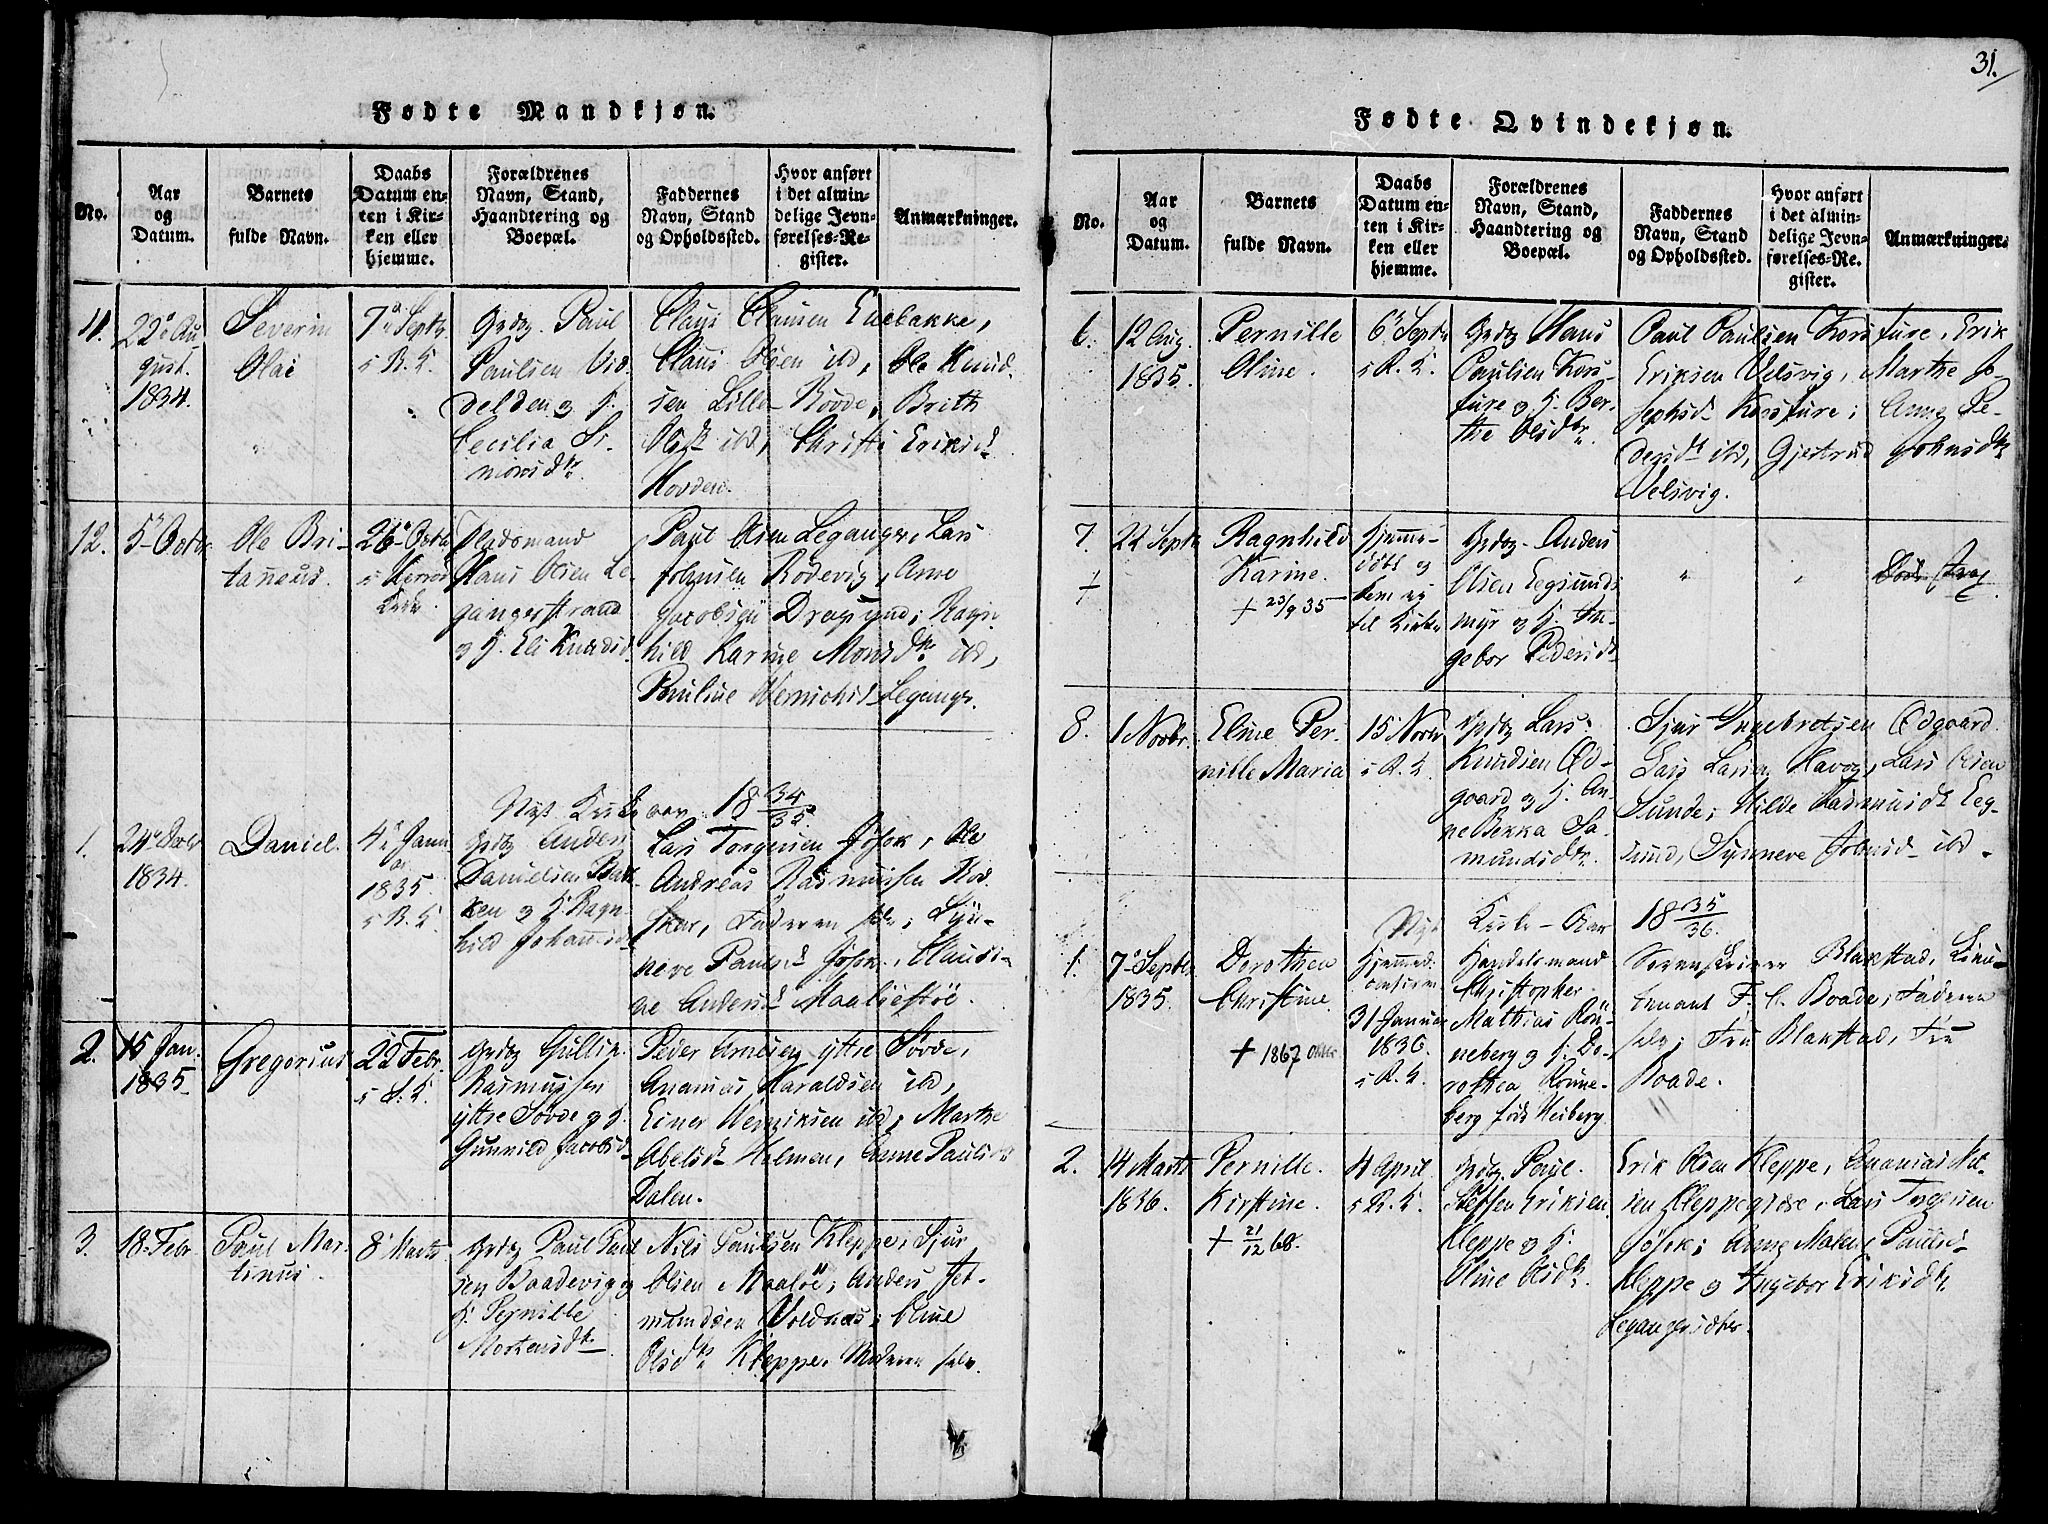 31.
Fødte Mandkjøn.
No.
Aar
og
Datum.
Barnets
fulde Navn.
Daabs
Datum en-
ten i Kir-
ken eller
hjemme.
Forældrenes
Navn, Stand,
Haandtering og
Boepæl.
Faddernes
Navn, Stand
og Opholdssted.
Hvor anført
i det almin-
delige Jevn-
førelses-Re-
gister.
Anmærkninger.
11.
22 Au
gust.
1834.
Severin
Olai
7 Septr
i R. K.
Grdbg. Paul
Paulsen Vid
delden og H.
Cecilia Si-
monsdtr
Claus Clausen Enebakke,
Claus Olsen ibd, Ole Knud
sen Lille-Rövde, Brith
Olsdtr ibd, Christi Eriksd.
Hovden.
12.
5 Octbr
Ole Bri-
taneus.
26 Octbr
i Herrø
Kirke.
Pladsmand
Hans Olsen Le
gangerstrand
og H. Eli Knudsd.
Paul Olsen Leganger, Lars
Johnsen Rödevig, Arne
Jacobsen Dragsund; Ragn
hild Karine Monsdtr ibd,
Pauline Leganger.
Nyt Kirkeaar 18 34/35
1.
24 Decbr
1834
Daniel.
4 Janu
ar
1835.
i R. K.
Grdbg Anders
Danielsen Bak
ken og H. Ragn
hild Johannesd.
Lars Torgersen Jösok, Ole
Andreas Rasmussen Rod
skar, Faderen selv; Syn-
neve Paulsd. Jösok, Clausi-
ne Andersd. Maalöestöe.
2.
15 Jan.
1835
Gregorius
22 Febr.
i S. K.
Grdbg Gullik
Rasmussen
yttre Sövde og H.
Gunnild Jacobsd
Peder Arnesen yttre Sövde,
Ananias Haraldsen ibd,
Einer Henriksen ibd, Marthe
Abelsdr Holmen, Anne Paulsd.
Dalen.
3.
18 Febr.
Paul Mar-
tinus.
8 Marts
Grdbg Paul Paul
sen Baadsvig og
H. Pernille
Mortensdtr
Nils Paulsen Kleppe, Sjur
Olsen Maalöe, Anders Jet-
mundsen Voldnes, Oline
Olsdtr Kleppe, Moderen selv.
Fødte Qvindekjøn.
No.
Aar
og
Datum.
Barnets
fulde Navn.
Daabs
Datum en-
ten i Kir-
ken eller
hjemme.
Forældrenes
Navn, Stand,
Haandtering og
Boepæl.
Faddernes
Navn, Stand
og Opholdssted.
Hvor anført
i det almin-
delige Jevn-
førelses-Re-
gister.
Anmærkninger.
6.
12 Aug.
1835.
Pernille
Oline.
6 Septr
i R. K.
Grdbg Hans
Paulsen Kors-
fure og H. Ber-
the Olsdtr
Paul Paulsen Korsfure, Erik
Eriksen Velsvig, Marthe Jo-
sephsdr Korsfure; Anne Pe-
dersdt ibd, Gjertrud Johnsdtr
Velsvig.
7.
22 Septr
Ragnhild
Karine.
+ 23/9 35
Hjemme-
döbt og
kom ej
til Kirke
Grdbg. Anders
Olsen Eegsunds
myr og H. In-
gebor Pedersdt
"
"
8.
1 Novbr.
Eline Per-
nille Maria
15 Novbr
i R. K.
Grdbg Lars
Knudsen Öd-
gaard og H. An-
ne Bekka Sa-
mundsdtr.
Sjur Ingebretsen Ödgaard
Lars Larsen Havog, Lars Olsen
Sunde; Hilde Rasmusdt Eeg-
sund, Synneve Johnsd. ibd.
Nyt Kirke-Aar 18 35/36.
1.
7 Septbr
1835.
Dorothea
Christine
+ 1867 Oktbr.
Hjemmed.
31 Januar
1836.
i R. K.
Handelsmand
Christopher
Mathias Rön-
neberg og H. Do-
rothea Rönne-
berg föd Heiberg
Sorenskriver Blakstad, Lieu-
tenant F. C. Boade, Faderen
selv; Fru Blakstad, Fru
Boade.
2.
14 Marts
1836.
Pernille
Kirstine.
+ 21/12 68.
4 April
i R. K.
Grdbg. Poul
Steffen Eriksen
Kleppe og H.
Oline Olsdtr.
Erik Olsen Kleppe, Ananias Nil-
sen Kleppegröe, Lars Torgersen
Jösok; Anne Malene Paulsd.
Kleppe og Ingebor Eriksdtr.